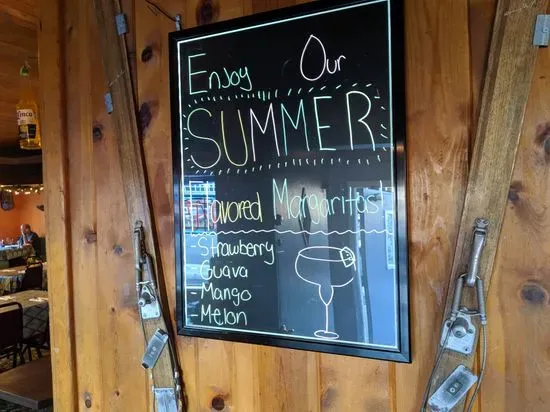 Enjoy Our
SUMMER
Flavored Margaritas!
- Strawberry
- Guava
- Mango
- Melon